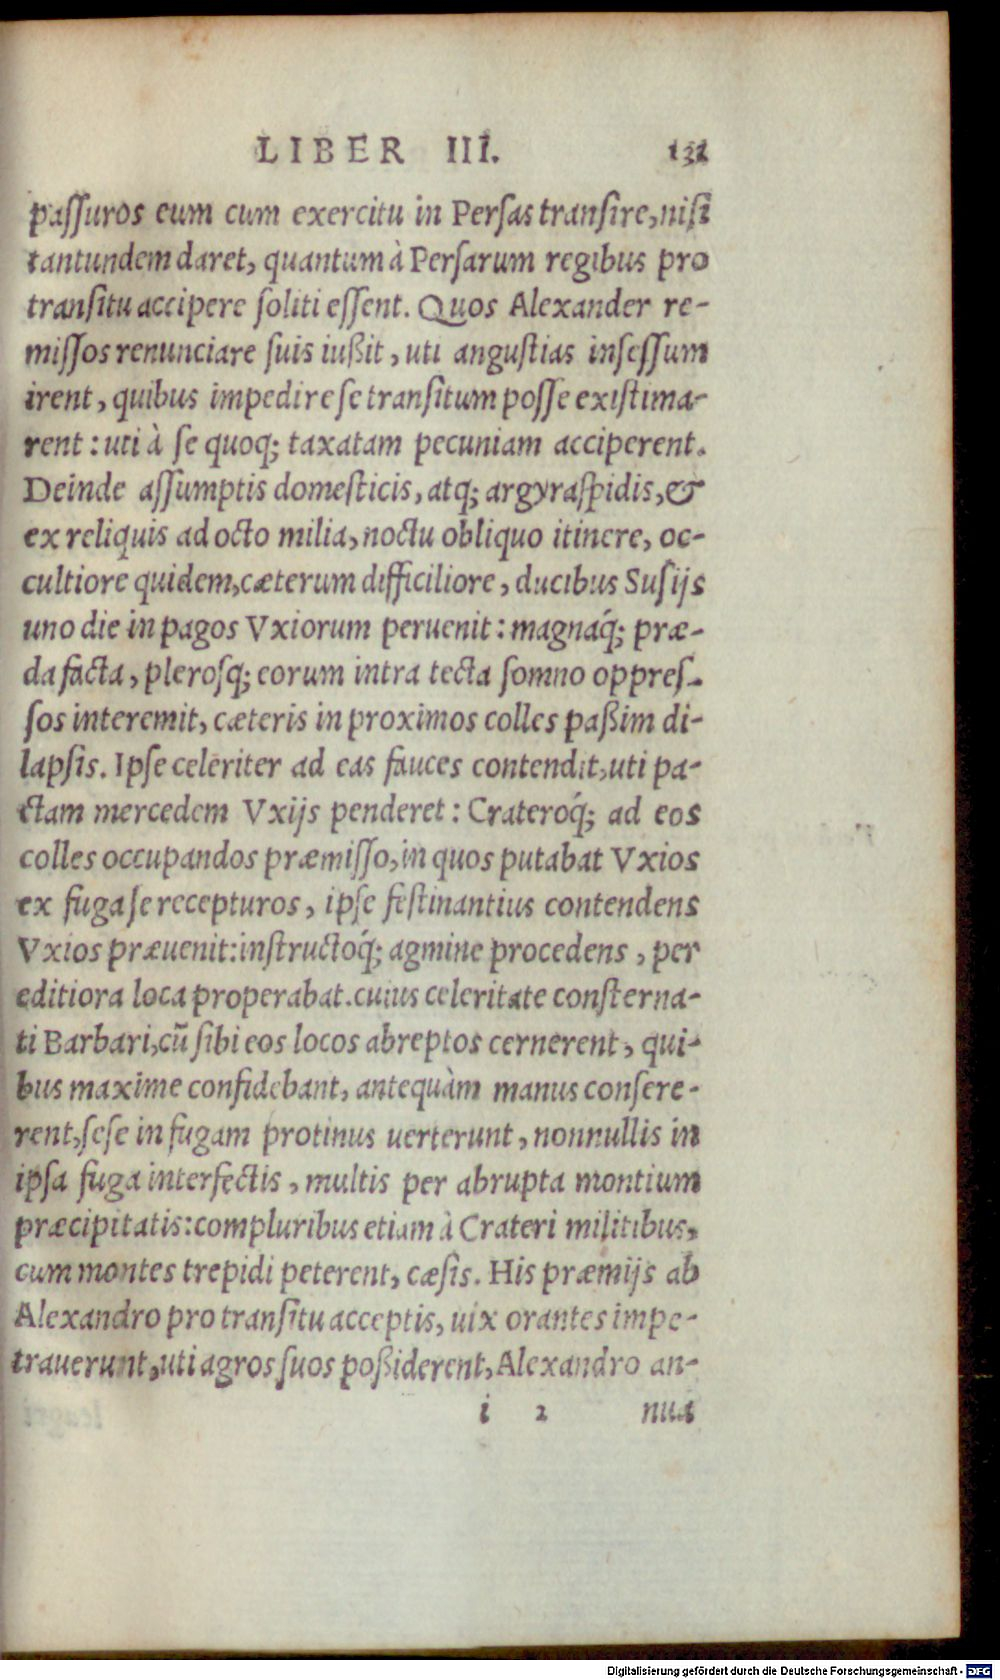 LIBER III. 131
passuros eum cum exercitu in Persas transire, nisi
tantundem daret, quantum à Persarum regibus pro
transitu accipere soliti essent. Quos Alexander re-
missos renunciare suis iußit, uti angustias insessum
irent, quibus impedire se transitum posse existima-
rent: uti à se quoq; taxatam pecuniam acciperent.
Deinde assumptis domesticis, atq; argyraspidis, &
ex reliquis ad octo milia, noctu obliquo itinere, oc-
cultiore quidem, cæterum difficiliore, ducibus Susijs
uno die in pagos Vxiorum peruenit: magnaq́; præ-
da facta, plerosq; eorum intra tecta somno oppres-
sos interemit, cæteris in proximos colles paßim di-
lapsis. Ipse celeriter ad eas fauces contendit, uti pa-
ctam mercedem Vxijs penderet: Crateroq́; ad eos
colles occupandos præmisso, in quos putabat Vxios
ex fuga se recepturos, ipse festinantius contendens
Vxios præuenit: instructoq́; agmine procedens, per
editiora loca properabat. cuius celeritate consterna-
ti Barbari, cū sibi eos locos abreptos cernerent, qui-
bus maxime confidebant, antequàm manus consere-
rent, sese in fugam protinus uerterunt, nonnullis in
ipsa fuga interfectis, multis per abrupta montium
præcipitatis: compluribus etiam à Crateri militibus,
cum montes trepidi peterent, cæsis. His præmijs ab
Alexandro pro transitu acceptis, uix orantes impe-
trauerunt, uti agros suos poßiderent, Alexandro an-
i 2 nua
Digitalisierung gefördert durch die Deutsche Forschungsgemeinschaft - DFG